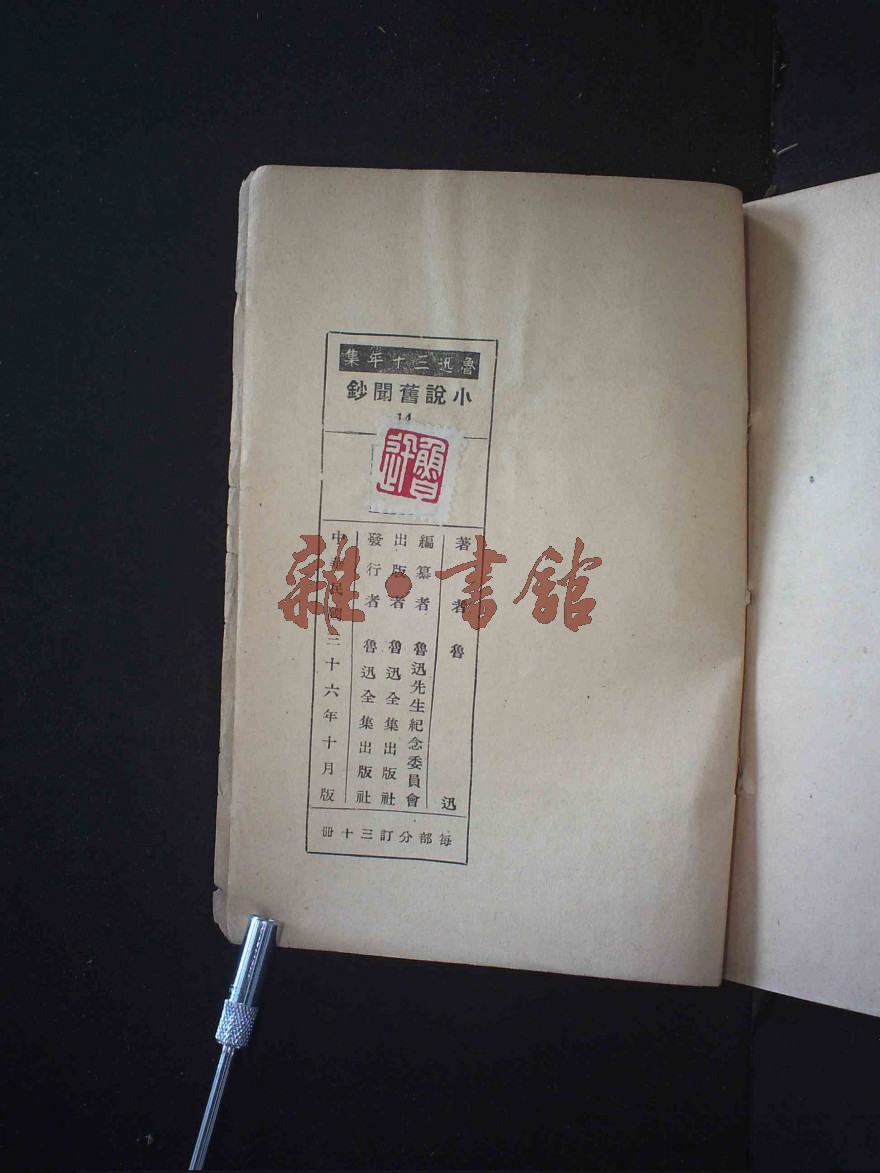 魯迅三十年集
小說舊聞鈔
14
魯迅
著者 魯迅
編纂者 魯迅先生紀念委員會
出版者 魯迅全集出版社
發行者 魯迅全集出版社
中華民國三十六年十月版
每部分訂三十冊
雜·書館